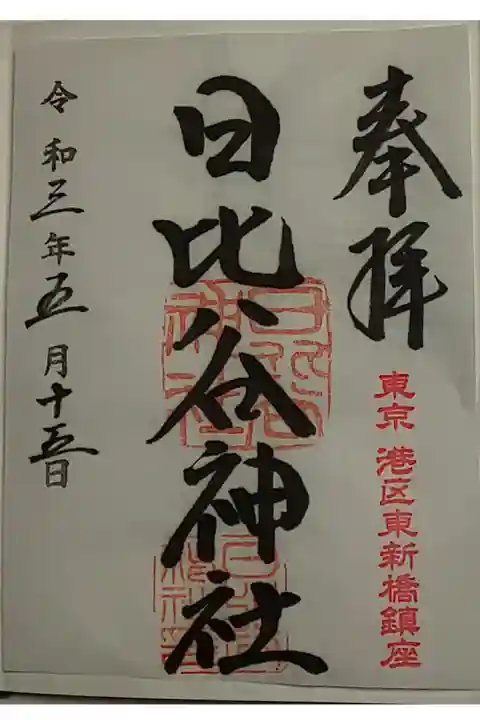 奉拝
東京 港区東新橋鎮座
日比谷神社
令和三年五月十五日